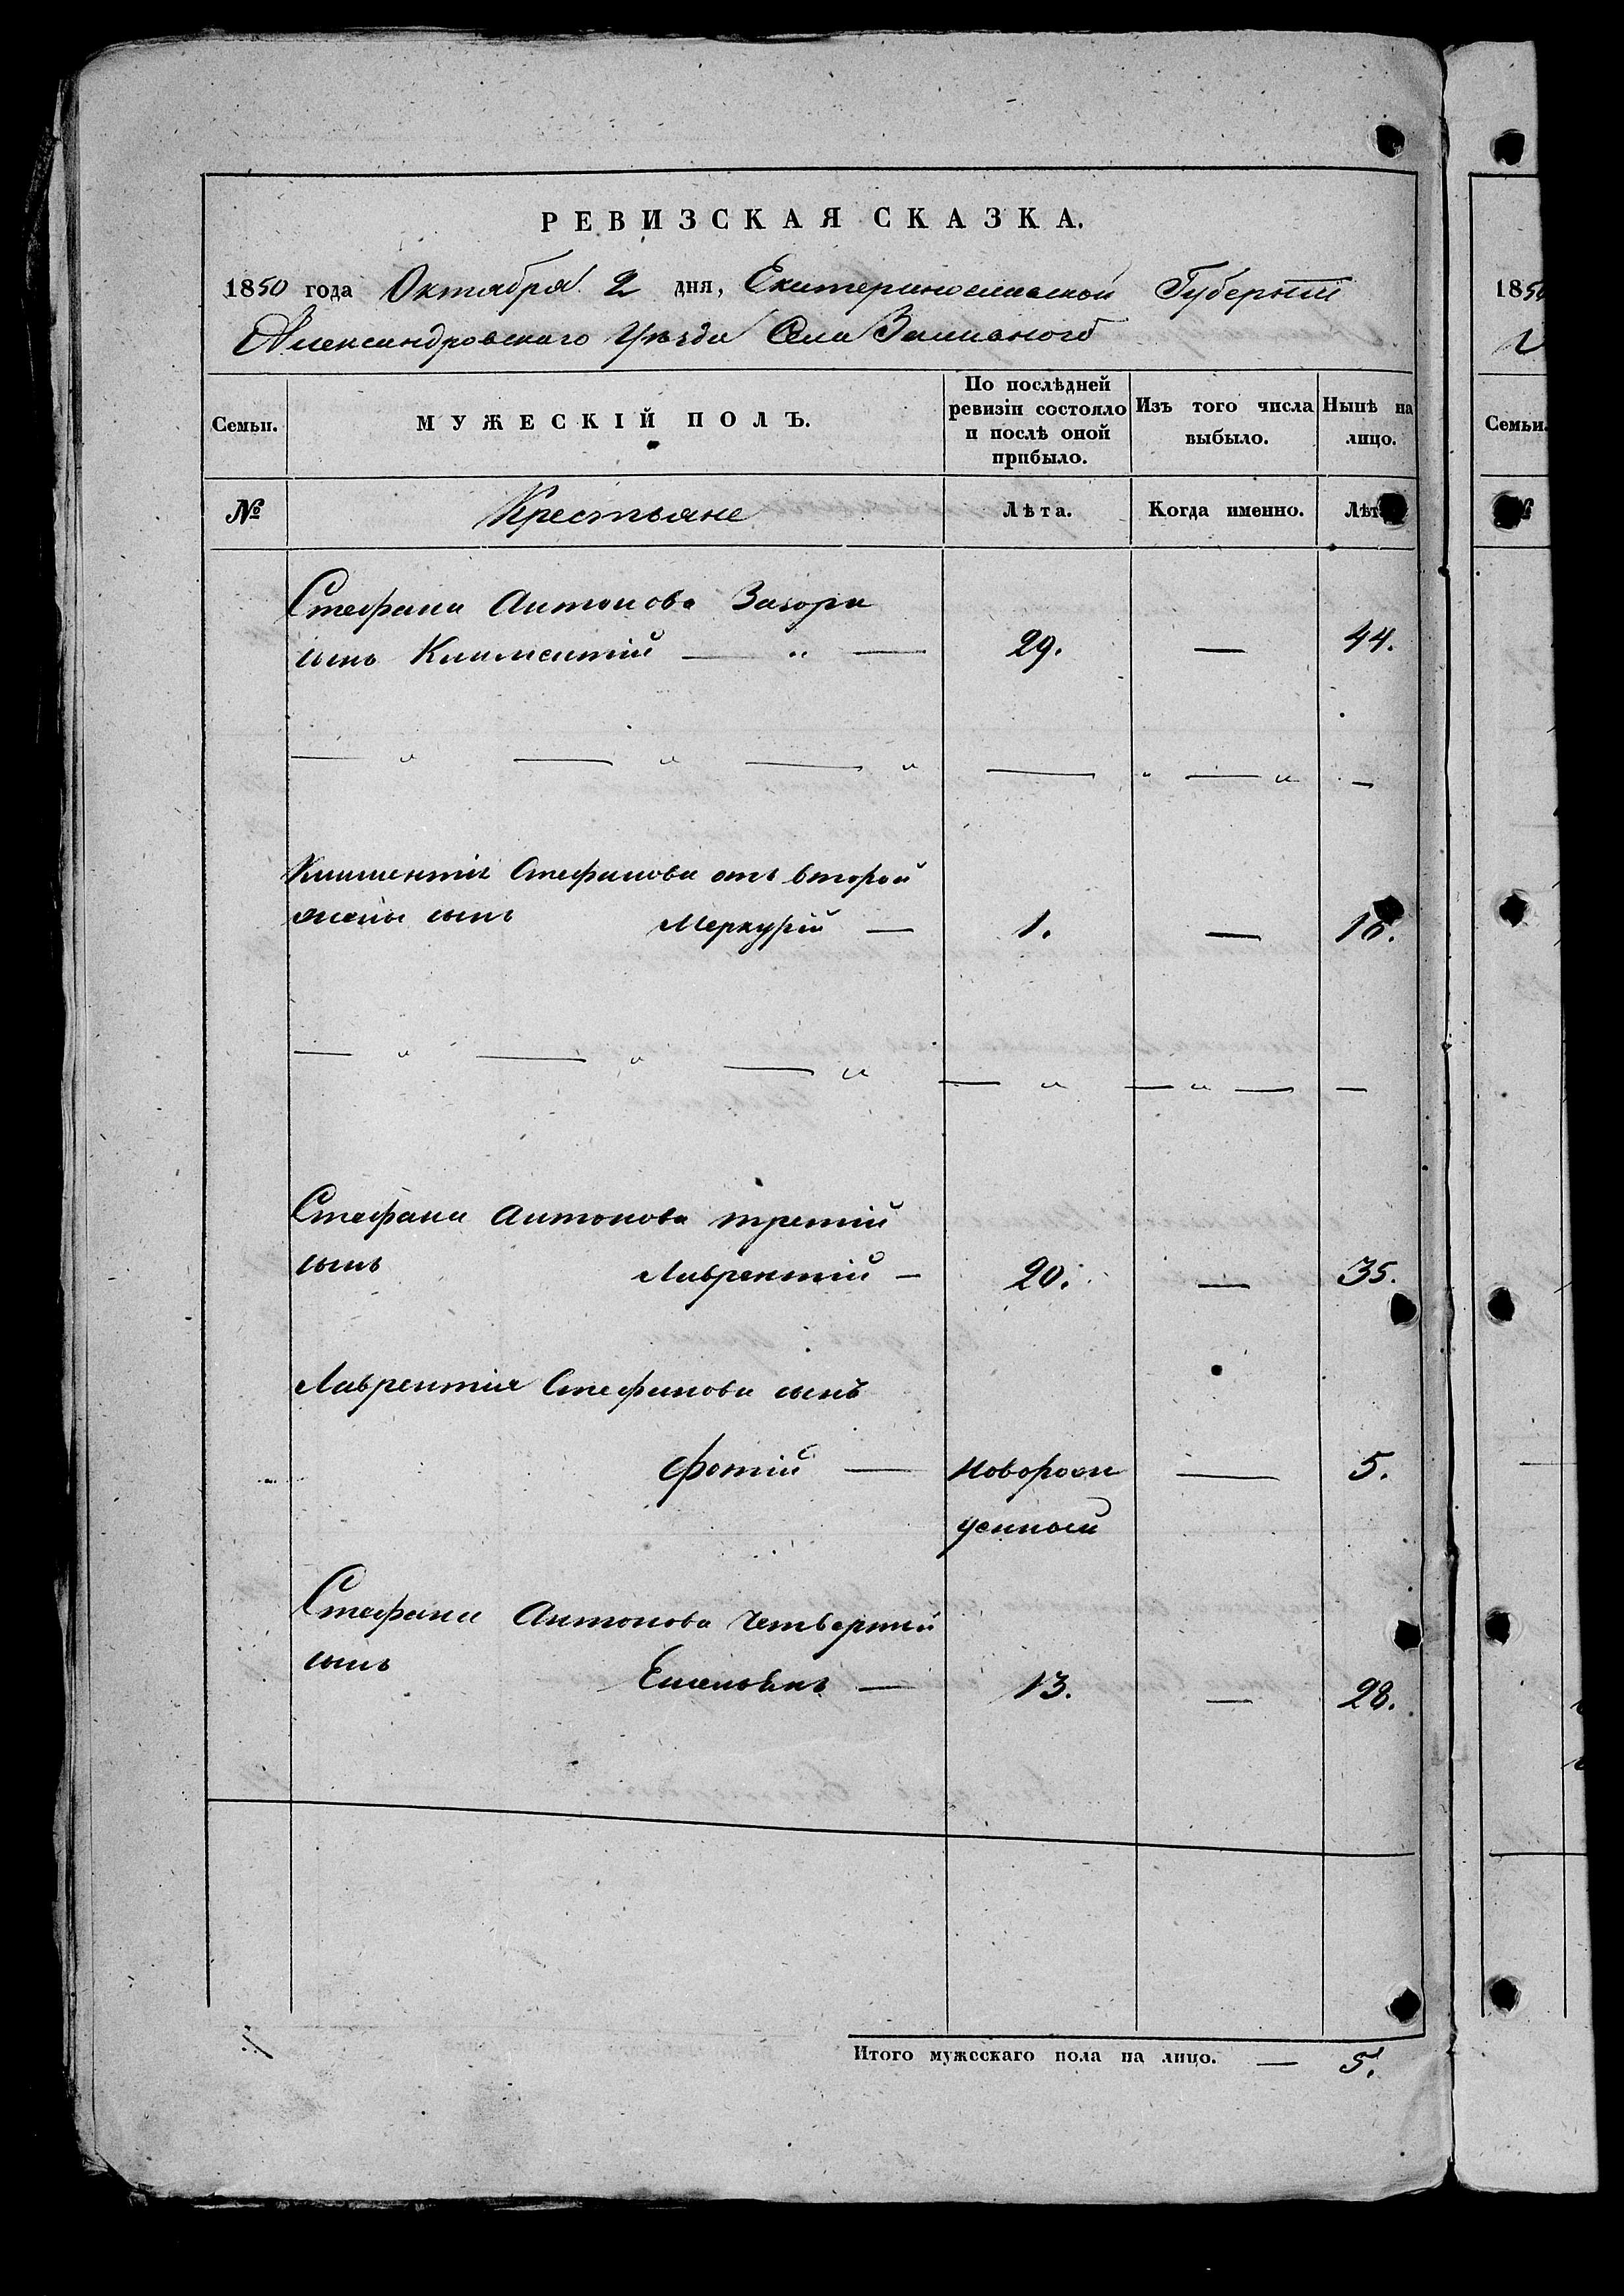 РЕВИЗСКАЯ СКАЗКА.
1850 года Октября 2 дня, Екатеринославской Губернии
Александровского Уѣзда Села Заливного
Семьи.
МУЖЕСКІЙ ПОЛЪ.
По послѣдней ревизіи состояло и послѣ оной прибыло.
Изъ того числа выбыло.
Нынѣ на лицо.
№
Крестьяне
Лѣта.
Когда именно.
Лѣт
Стефана Антонова Загоры
сынъ Климентій — " — 29. — 44.
— " — " — " — " — " —
Климентія Стефанова отъ второй
жены сынъ Меркурій — 1. — 16.
— " — " — " — " — " — —
Стефана Антонова третій
сынъ Лаврентій — 20. — 35.
Лаврентія Стефанова сынъ
Фотій — новорож — 5.
денный
Стефана Антонова четвертый
сынъ — 13. — 28.
Итого мужескаго пола на лицо. — 5.
1850
Семьи.
№